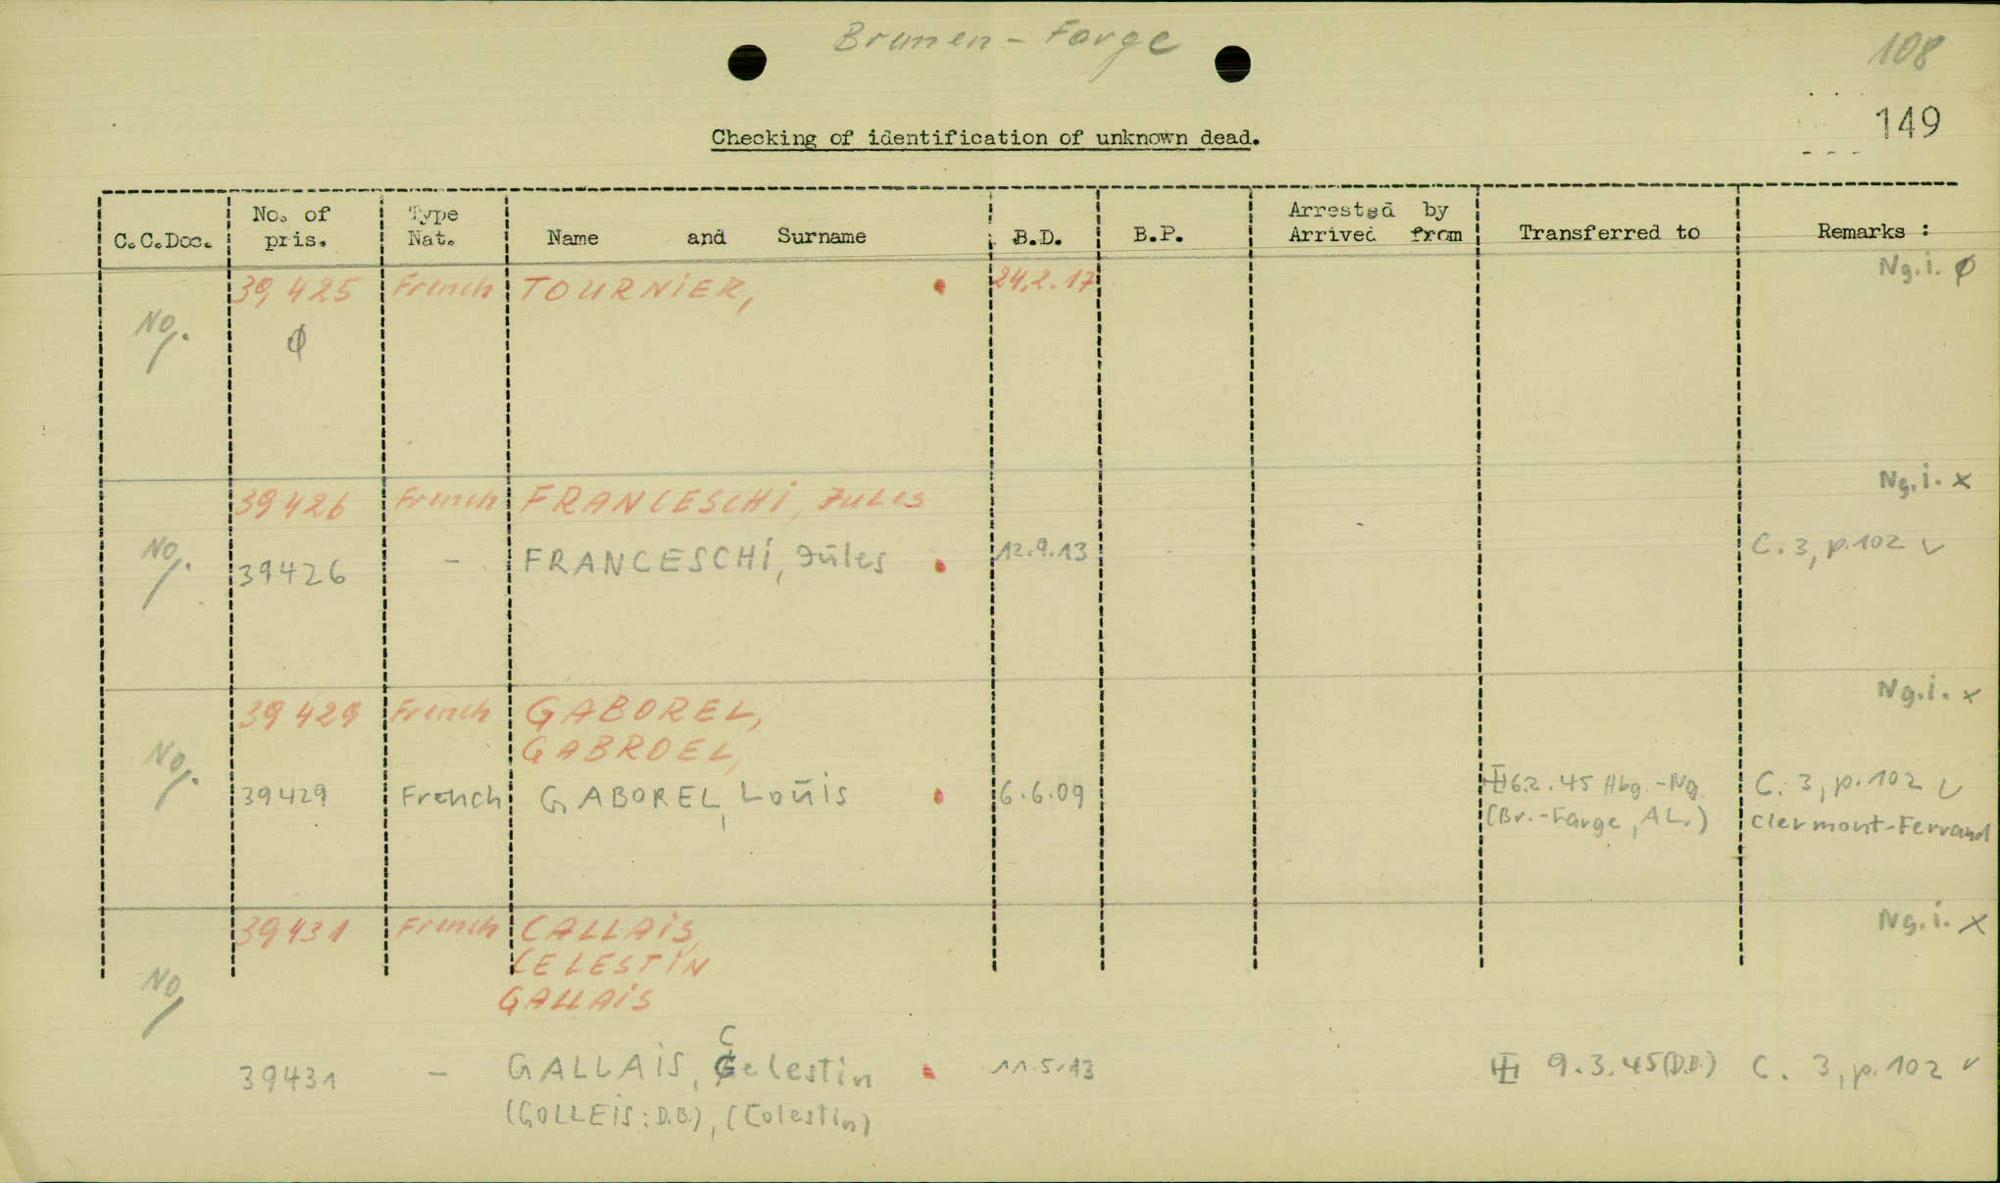 Bremen - Farge
108
149
Checking of identification of unknown dead.
C.C.Doc. No. of pris. Type Nat. Name and Surname B.D. B.P. Arrested by Arrived from Transferred to Remarks :
39 425 French TOURNIER, 24.2.17 Ng.i. ϕ
No. ϕ
39 426 French FRANCESCHI, Jules Ng.i. x
No. 39426 - FRANCESCHI, Jules 12.9.13 C. 3, p. 102 ✓
39 429 French GABOREL, Ng.i. x
GABROEL,
No. 39429 French GABOREL, Louis 6.6.09 6.2.45 Hbg.-Ng. C. 3, p. 102 ✓
(Br.-Farge, AL.) Clermont-Ferrand
39 431 French CALLAIS, Ng.i. x
CELESTIN
No GALLAIS
39431 - GALLAIS, Celestin 11.5.13 9.3.45 (D.B.) C. 3, p. 102 ✓
(GOLLEIS: D.B.), (Colestin)